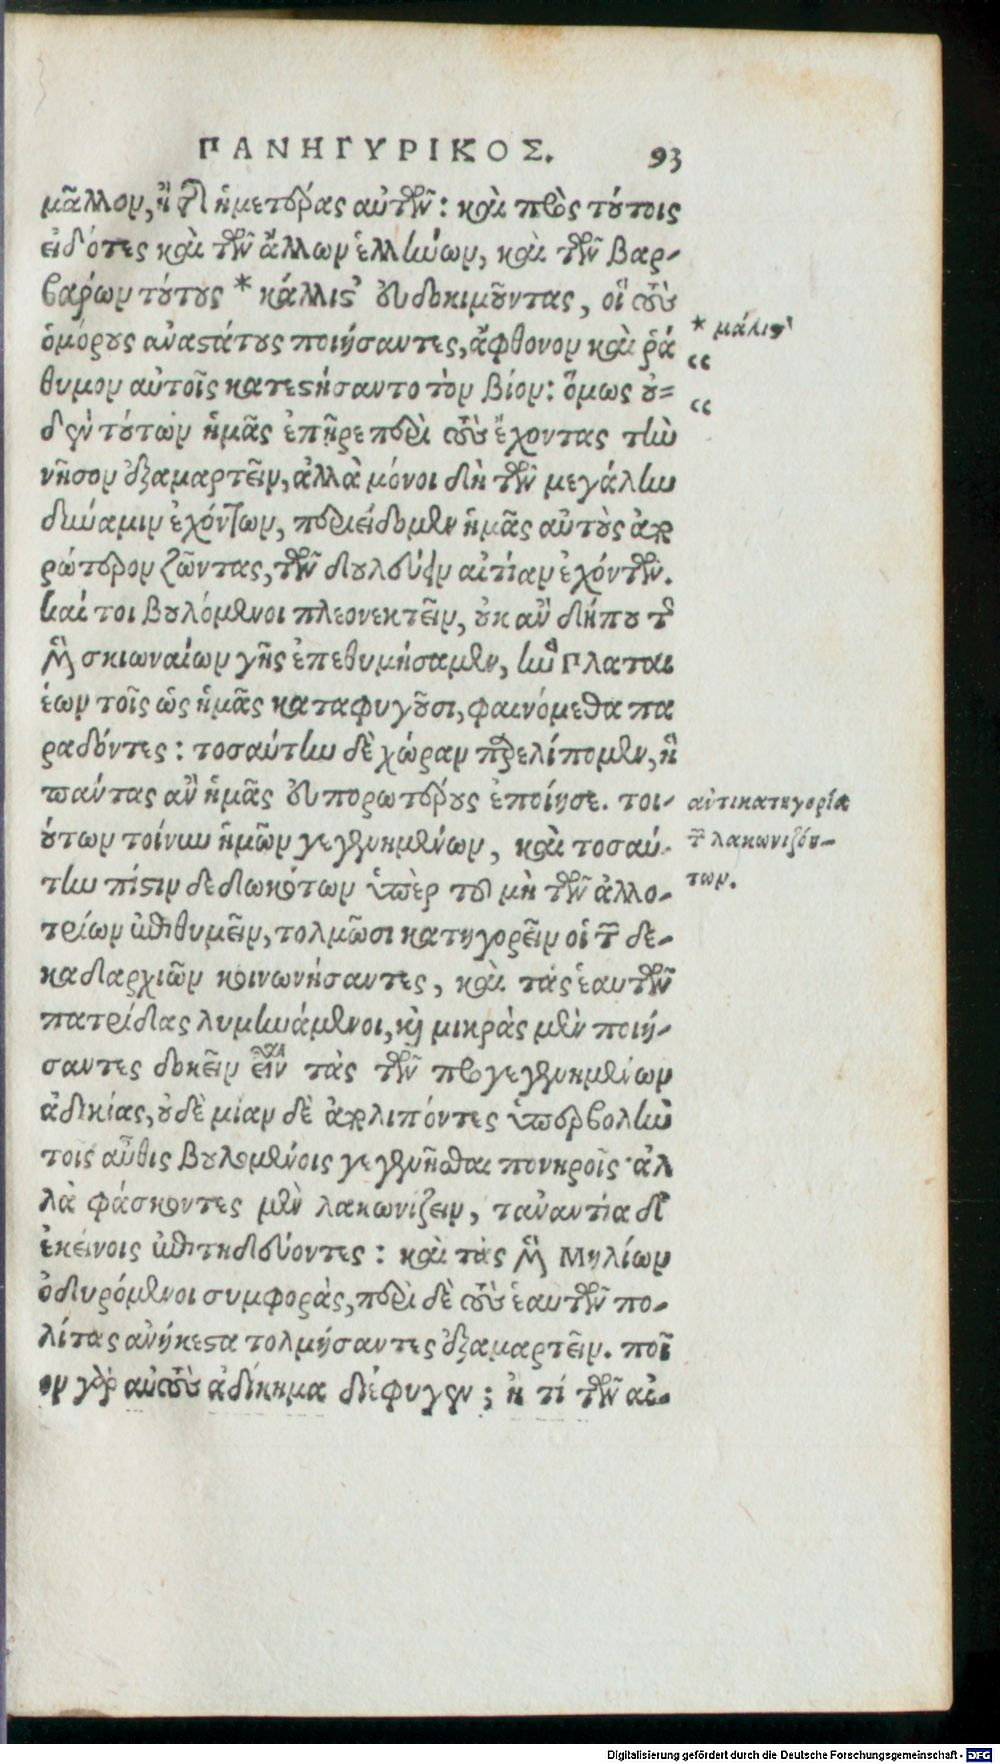 ΠΑΝΗΓΥΡΙΚΟΣ. 93
μᾶλλον, ἢ τῆς ἡμετέρας αὐτῶν: καὶ πρὸς τούτοις
εἰδότες καὶ τῶν ἄλλων ἑλλήνων, καὶ τῶν βαρ-
βάρων τούτους * κάλλιστ' εὐδοκιμοῦντας, οἳ τοὺς
ὁμόρους ἀναστάτους ποιήσαντες, ἄφθονον καὶ ῥά
θυμον αὑτοῖς κατεστήσαντο τὸν βίον: ὅμως οὐ=
δὲν τούτων ἡμᾶς ἐπῇρε περὶ τοὺς ἔχοντας τὴν
νῆσον ἐξαμαρτεῖν, ἀλλὰ μόνοι δὴ τῶν μεγάλην
δύναμιν ἐχόντων, περιείδομεν ἡμᾶς αὐτοὺς ἀπο
ρώτερον ζῶντας, τῶν δουλεύειν αἰτίαν ἐχόντων.
καί τοι βουλόμενοι πλεονεκτεῖν, οὐκ ἂν δήπου τῆς
μὲν σκιωναίων γῆς ἐπεθυμήσαμεν, ἣν Πλαται
έων τοῖς ὡς ἡμᾶς καταφυγοῦσι, φαινόμεθα πα
ραδόντες: τοσαύτην δὲ χώραν παρελίπομεν, ἣ
πάντας ἂν ἡμᾶς εὐπορωτέρους ἐποίησε. τοι-
ούτων τοίνυν ἡμῶν γεγενημένων, καὶ τοσαύ-
την πίστιν δεδωκότων ὑπὲρ τοῦ μὴ τῶν ἀλλο-
τρίων ἐπιθυμεῖν, τολμῶσι κατηγορεῖν οἱ τῶν δε-
καδαρχιῶν κοινωνήσαντες, καὶ τὰς ἑαυτῶν
πατρίδας λυμηνάμενοι, καὶ μικρὰς μὲν ποιή-
σαντες δοκεῖν εἶναι τὰς τῶν προγεγενημένων
ἀδικίας, οὐδὲ μίαν δὲ ἀπολιπόντες ὑπερβολὴν
τοῖς αὖθις βουλομένοις γεγενῆσθαι πονηροῖς· ἀλ
λὰ φάσκοντες μὲν λακωνίζειν, τἀναντία δ'
ἐκείνοις ἐπιτηδεύοντες: καὶ τὰς μὲν Μηλίων
ὀδυρόμενοι συμφορὰς, περὶ δὲ τοὺς ἑαυτῶν πο-
λίτας ἀνήκεστα τολμήσαντες ἐξαμαρτεῖν. ποῖ
ον γὰρ αὐτοὺς ἀδίκημα διέφυγεν; ἢ τί τῶν αἰ-
* μάλιστ'
“
“
ἀντικατηγορία
τῶν λακωνιζόν-
των.
Digitalisierung gefördert durch die Deutsche Forschungsgemeinschaft - DFG